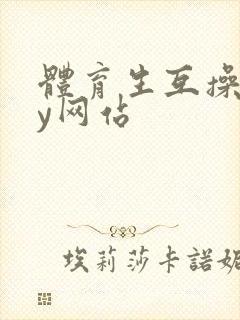 體育生互操
y网佔
埃莉莎卡諾妮